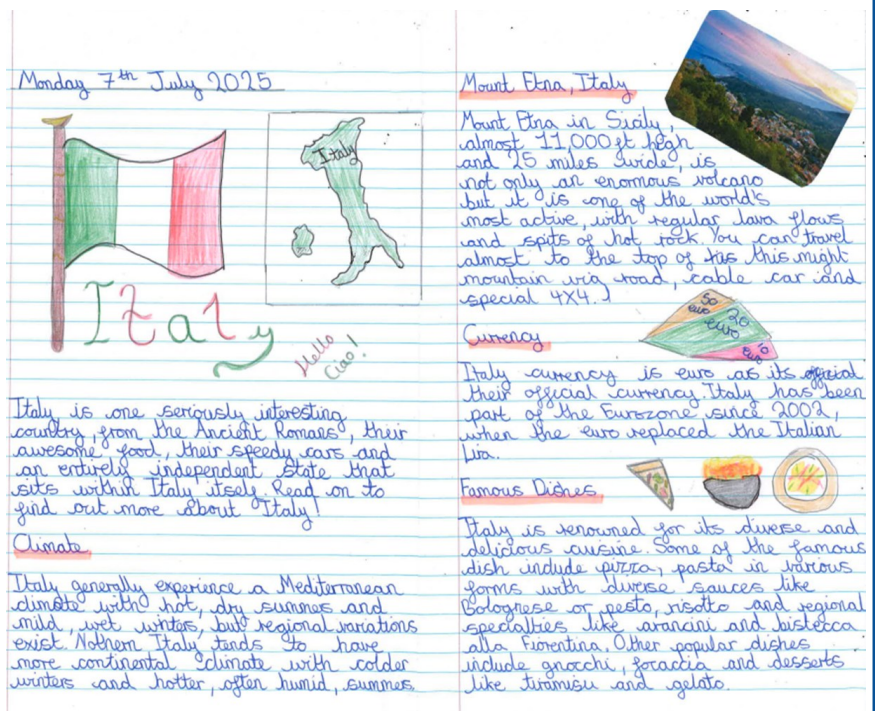 Monday 7th July 2025
Italy
Italy
Hello
Ciao!
Italy is one seriously interesting
country, from the Ancient Romans, their
awesome food, their speedy cars and
an entirely independent state that
sits within Italy itself. Read on to
find out more about Italy!
Climate
Italy generally experience a Mediterranean
climate with hot, dry summes and
mild, wet winters, but regional variations
exist. Nothern Italy tends to have
more continental climate with colder
winters and hotter, often humid, summes
Mount Etna, Italy
Mount Etna in Sicily,
almost 11,000ft high
and 25 miles wide, is
not only an enormous volcano
but it is one of the world's
most active, with regular lava flows
and spits of hot rock. You can travel
almost to the top of this might
mountain via road, cable car and
special 4X4.
50
euro
20
euro
10
euro
Currency
Italy currency is euro as its
their official currency. Italy has been
part of the Eurozone since 2002,
when the euro replaced the Italian
Lira.
Famous Dishes
Italy is renowned for its diverse and
delicious cuisine. Some of the famous
dish include pizza, pasta in various
forms with diverse sauces like
Bolognese or pesto, risotto and regional
specialties like arancini and bistecca
alla Fiorentina. Other popular dishes
include gnocchi, focaccia and desserts
like tiramisu and gelato.